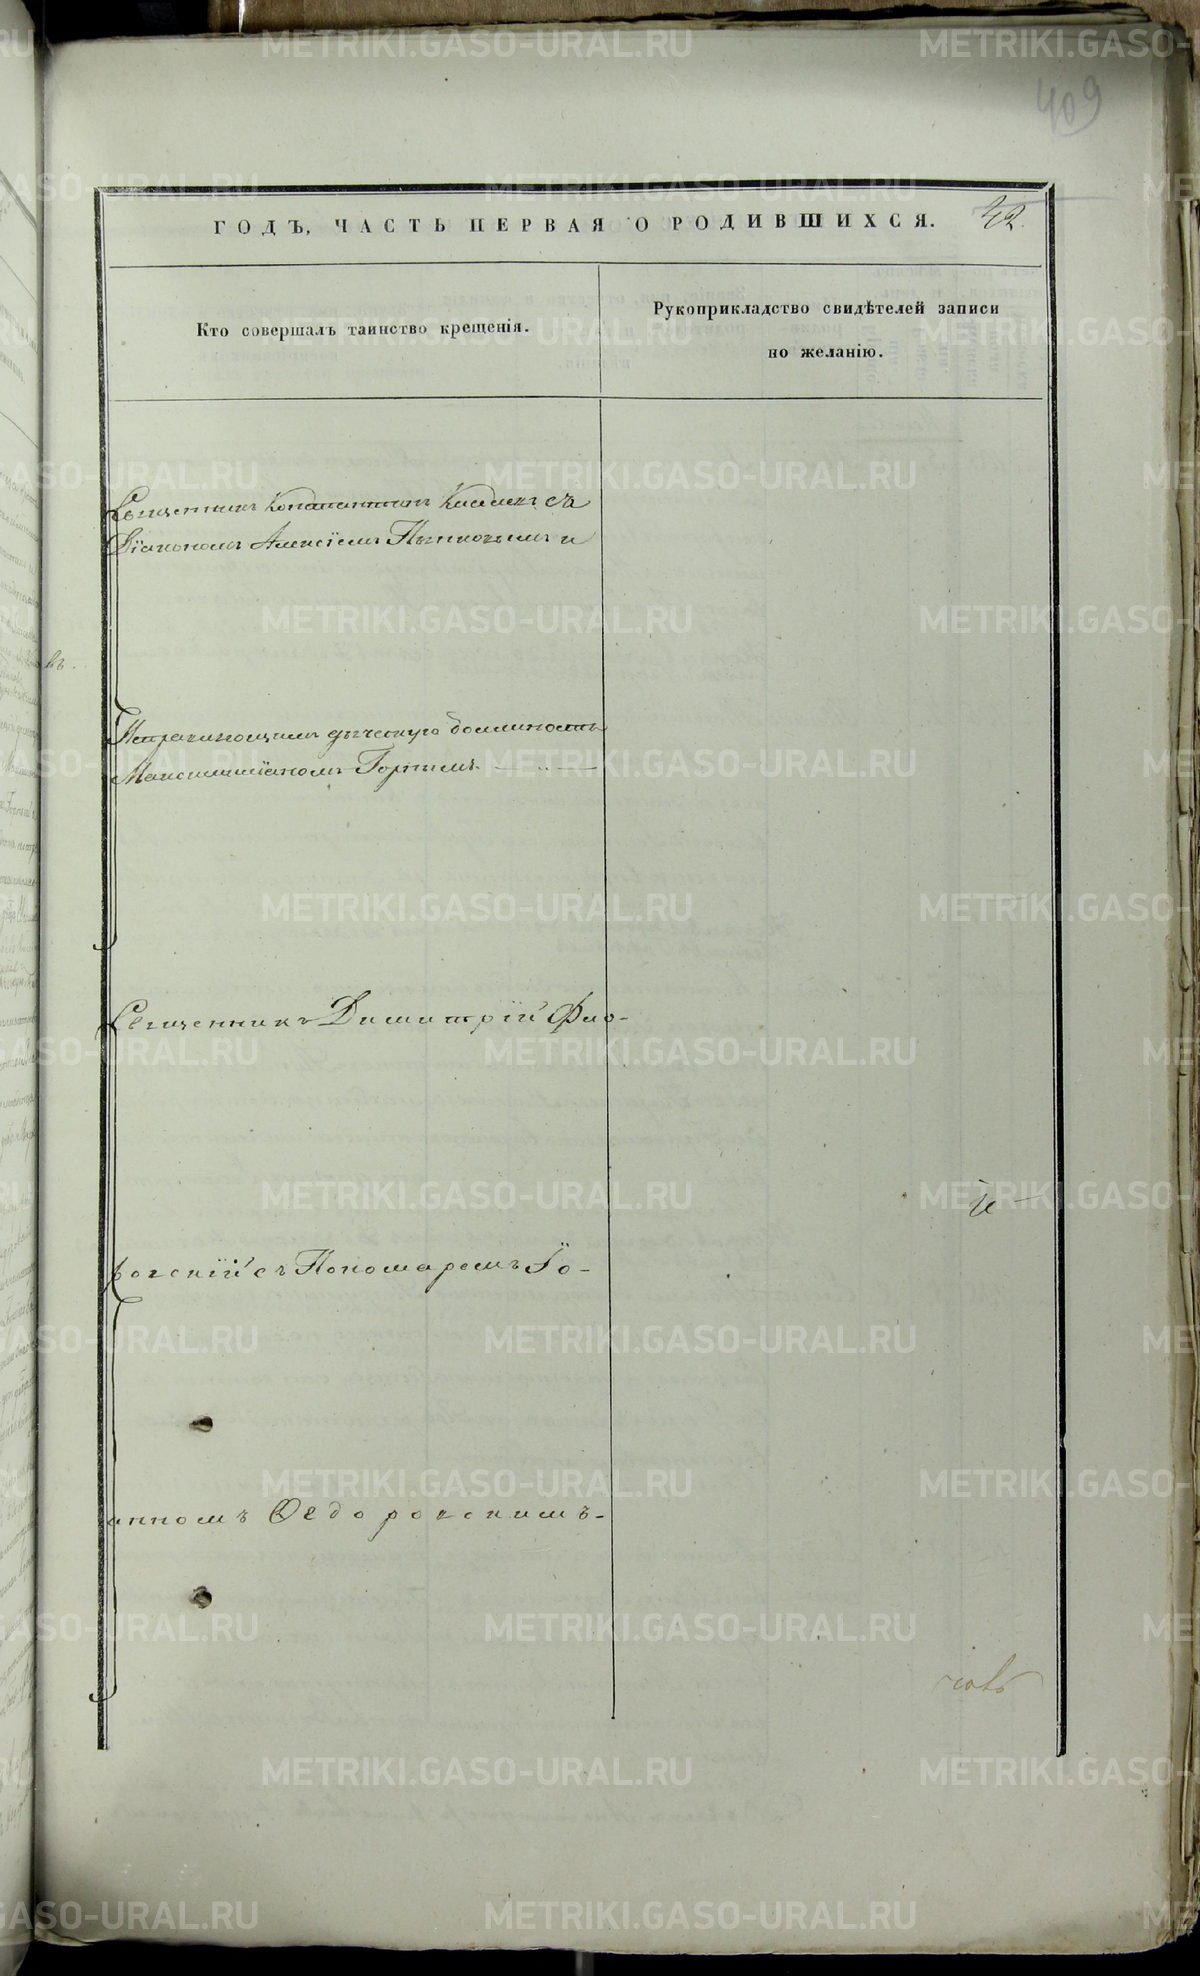 409
ГОДЪ, ЧАСТЬ ПЕРВАЯ О РОДИВШИХСЯ. 42.
Кто совершалъ таинство крещенія.
Рукоприкладство свидѣтелей записи
по желанію.
Священникъ Константинъ съ
Діакономъ Алексіемъ и
въ.
Исправляющимъ дьяческую должность
Максимиліаномъ Горнымъ.
Священникъ Димитрій Фло-
ровскій съ Пономаремъ Іо-
анномъ Ѳедоровскимъ.
METRIKI.GASO-URAL.RU